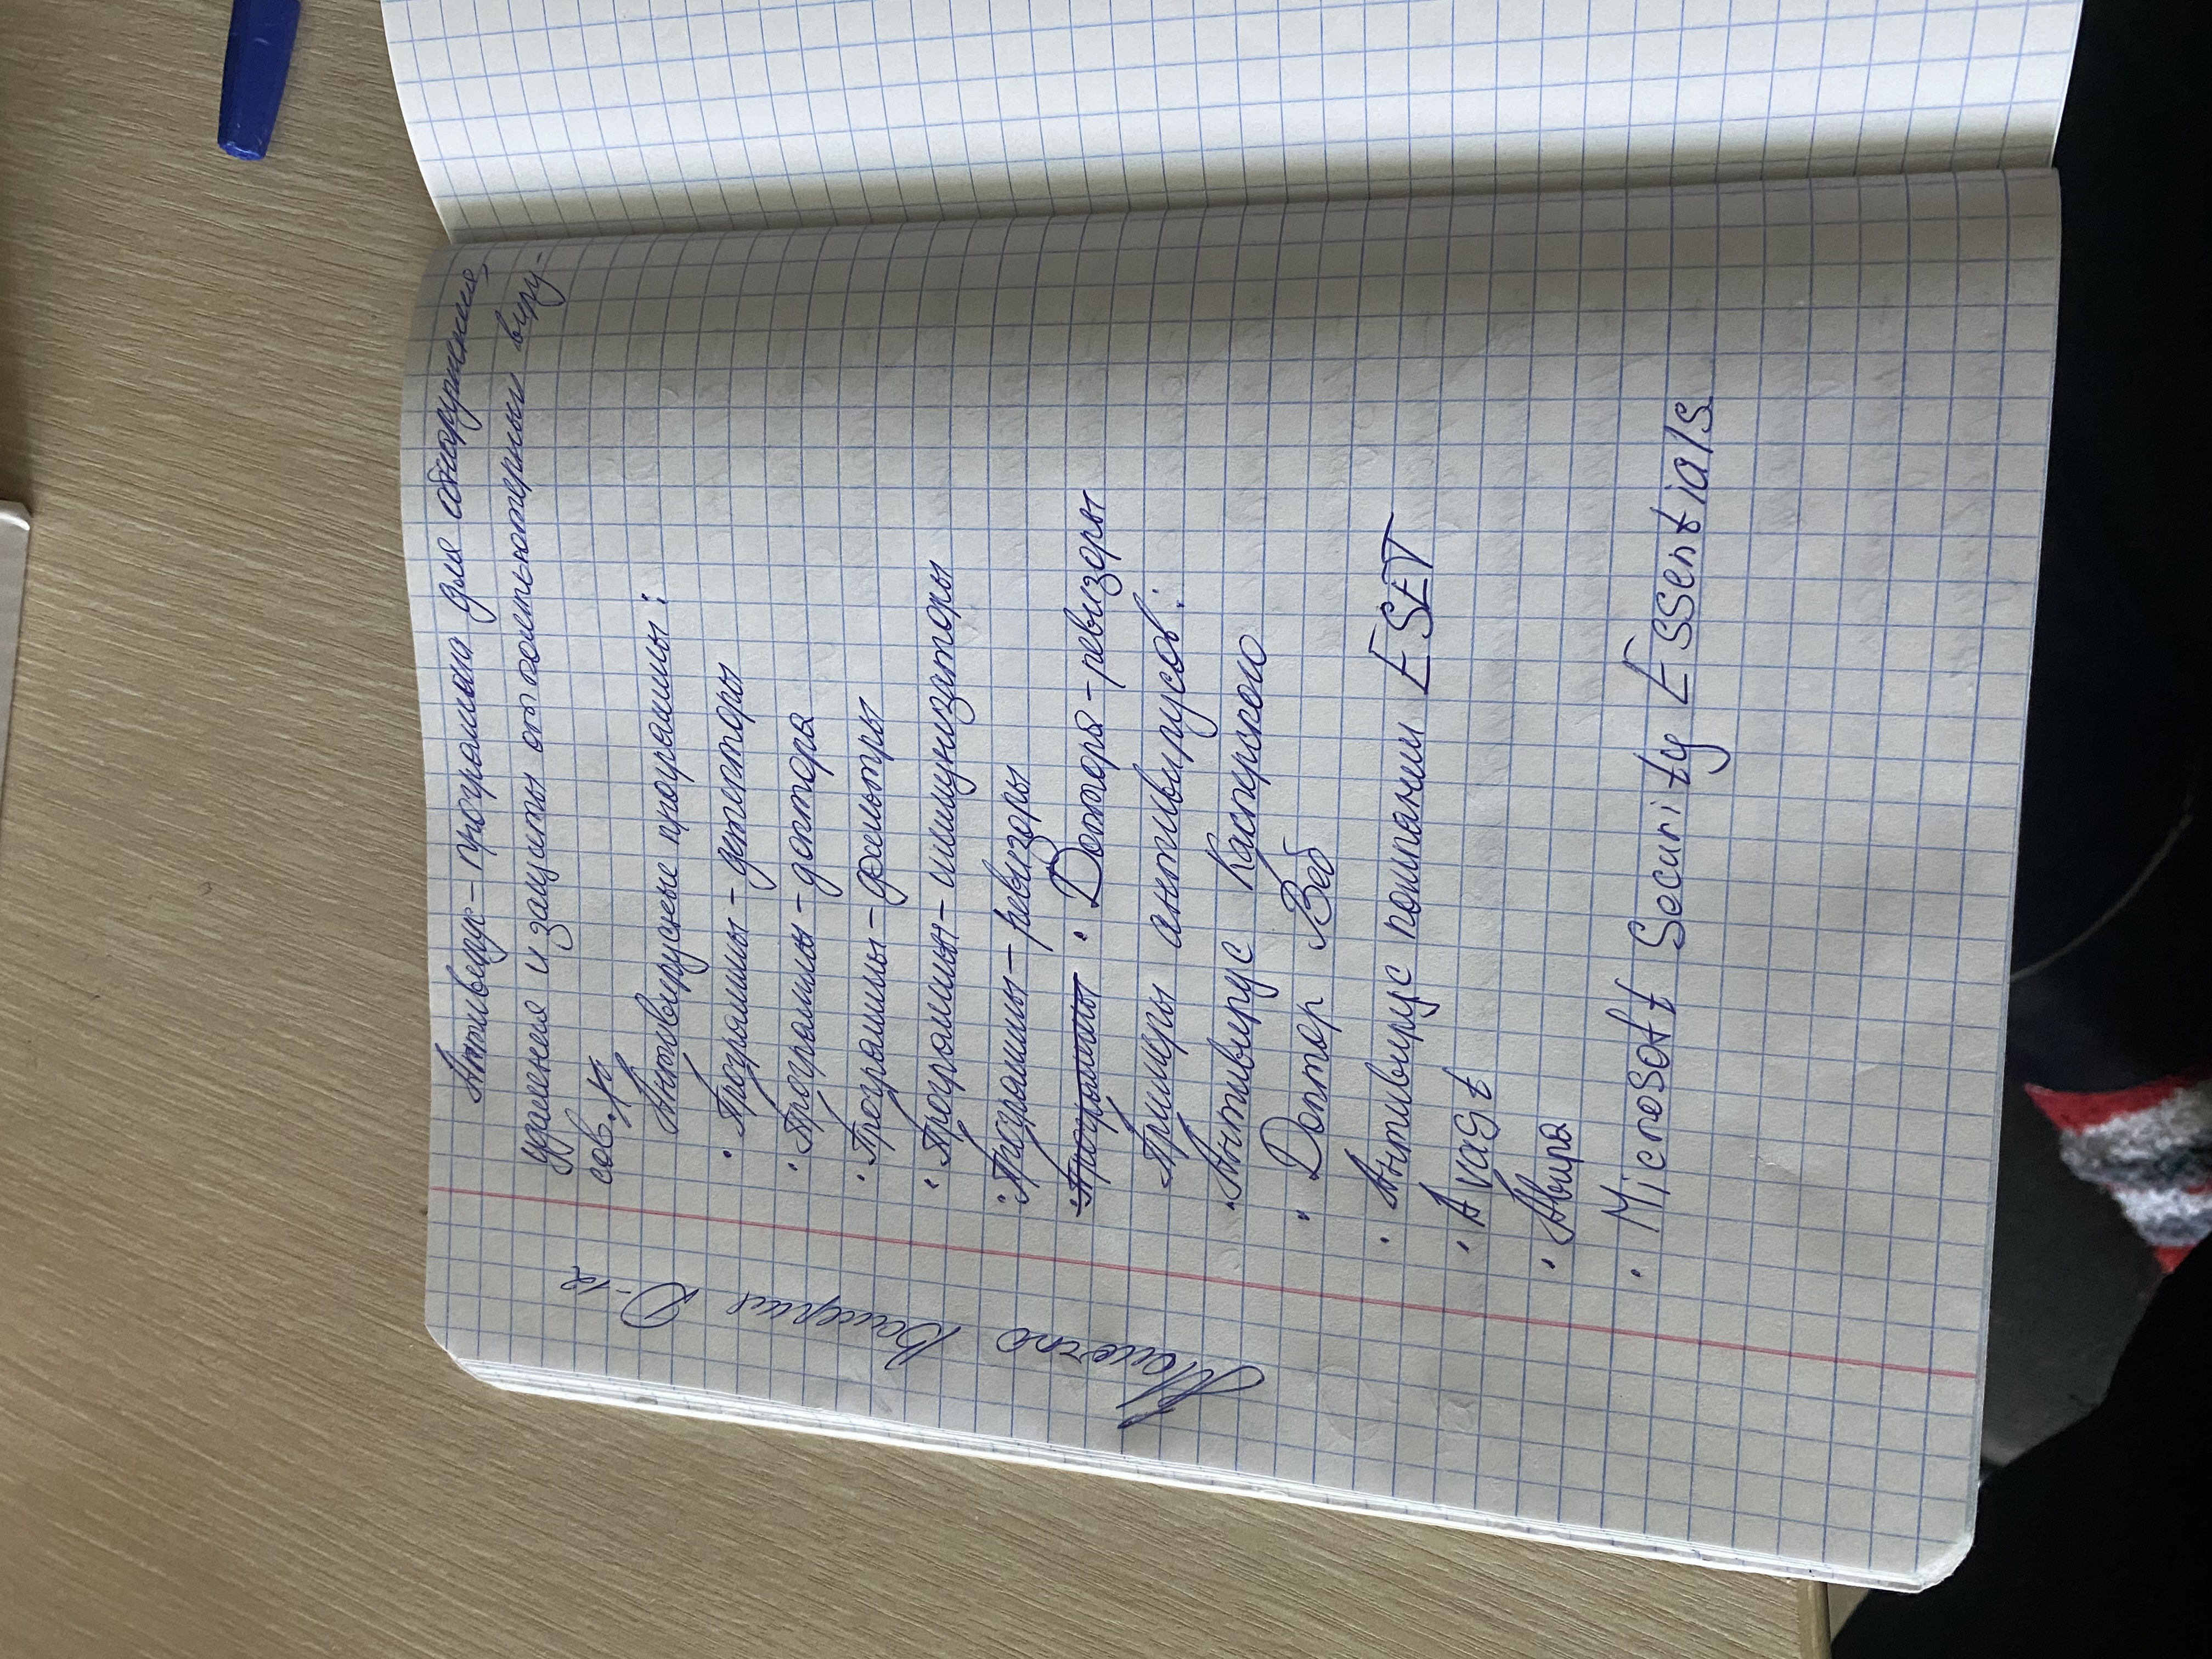 Антивирус – программа для обнаружения,
удаления и защиты от компьютерных виру-
сов.
Антивирусные программы:
• Программы – детекторы
• Программы – доктора
• Программы – фильтры
• Программы – иммунизаторы
• Программы – ревизоры
• Программы • Доктора – ревизоры
Примеры антивирусов:
• Антивирус Касперского
• Доктор Веб
• Антивирус компании ESET
• Avast
• Авира
• Microsoft Security Essentials
Валерия О-12